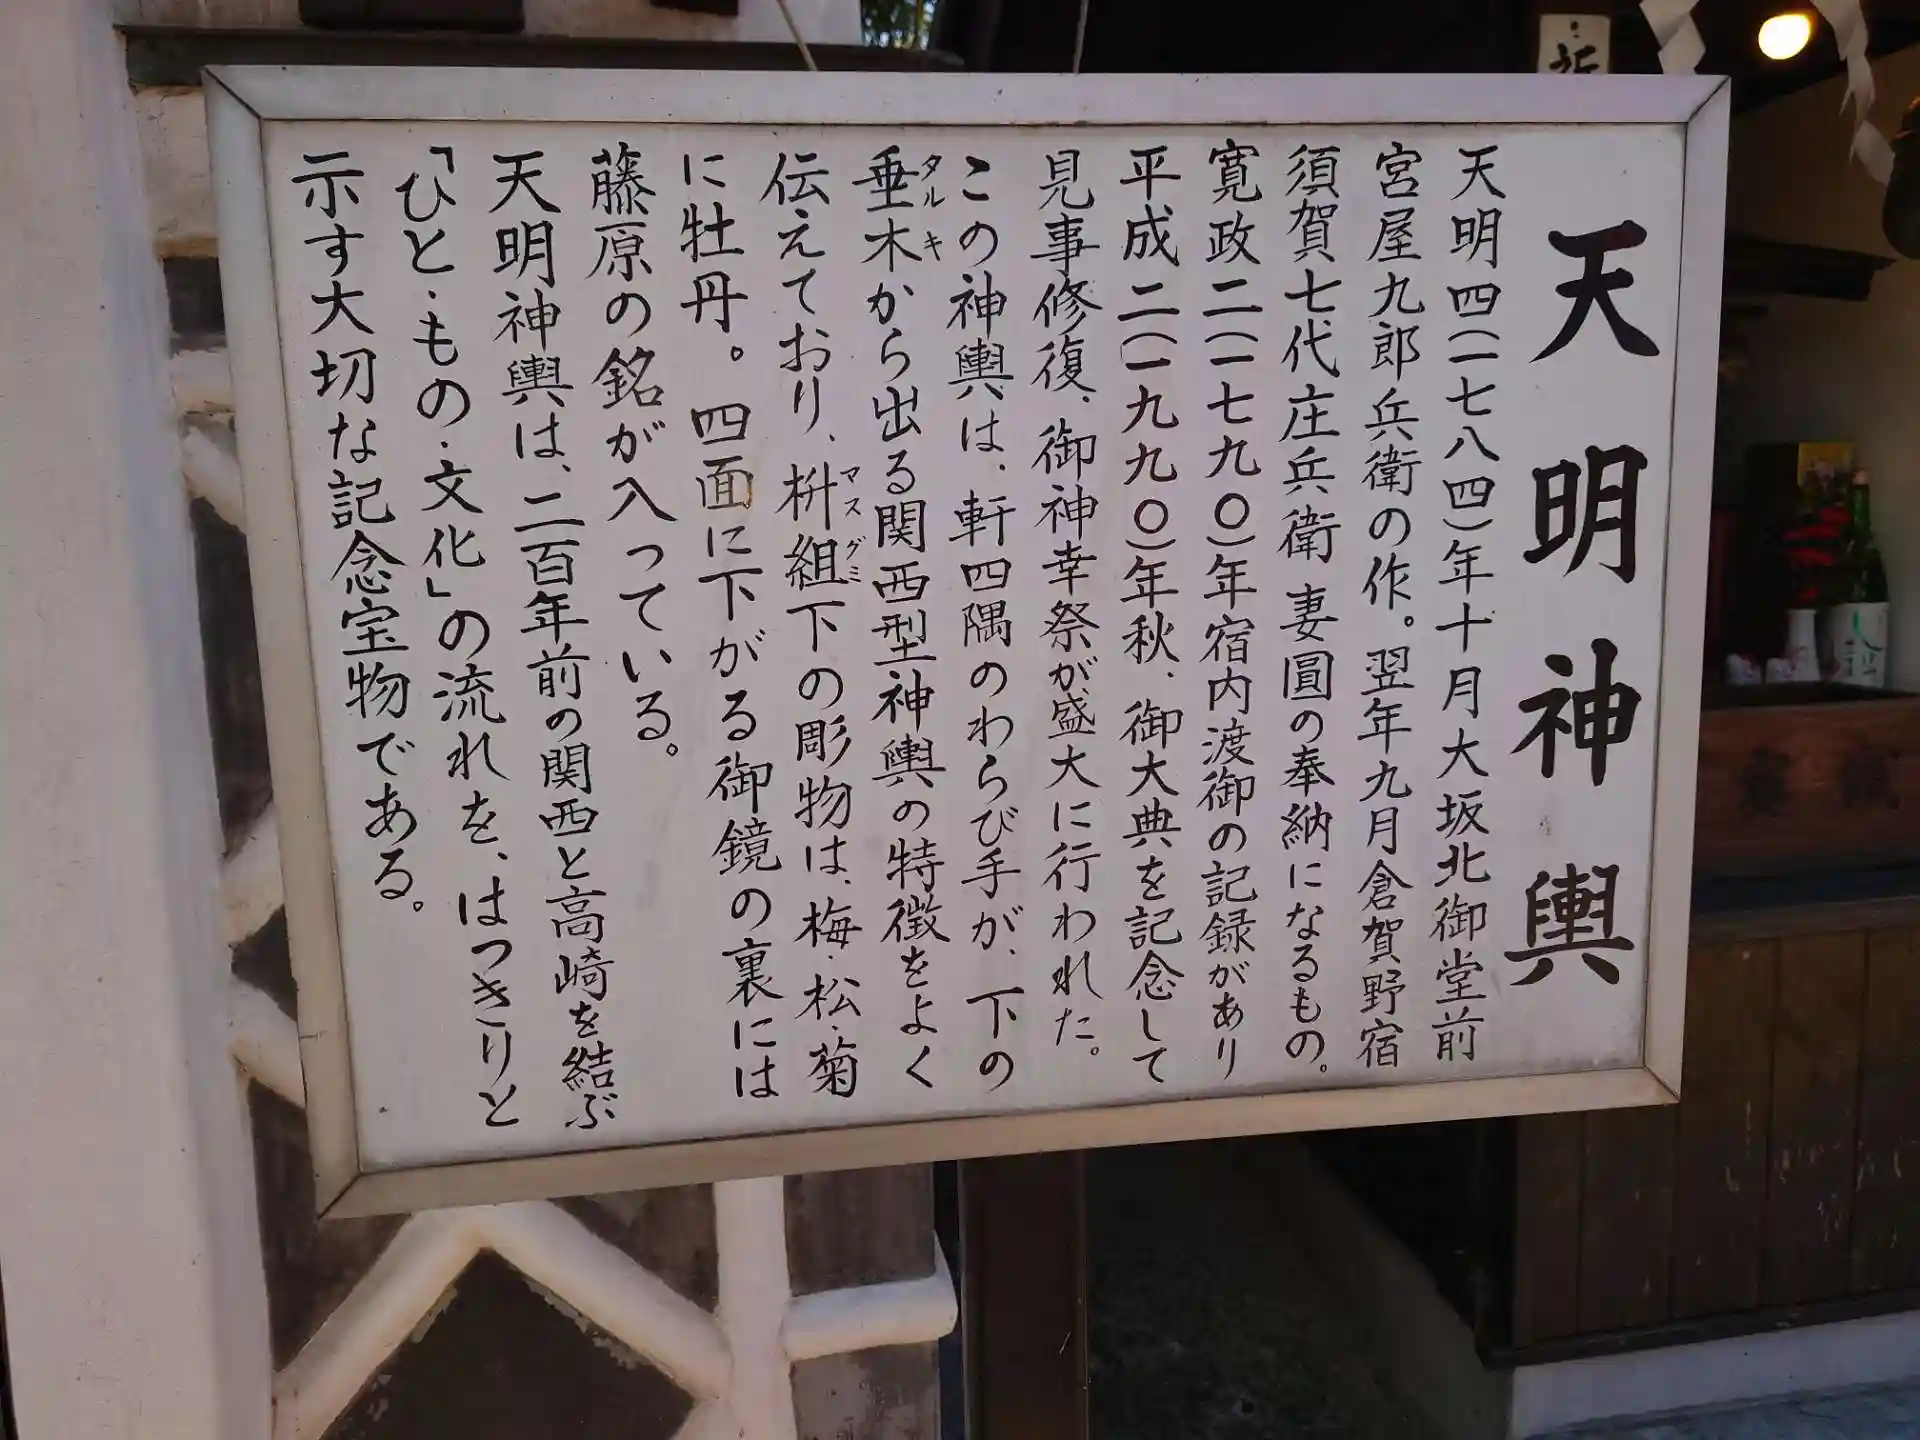 天明神輿
天明四(一七八四)年十月大坂北御堂前
宮屋九郎兵衛の作。翌年九月倉賀野宿
須賀七代庄兵衛妻圓の奉納になるもの。
寛政二(一七九〇)年宿内渡御の記録があり
平成二(一九九〇)年秋、御大典を記念して
見事修復、御神幸祭が盛大に行われた。
この神輿は、軒四隅のわらび手が、下の
垂木から出る関西型神輿の特徴をよく
タルキ
伝えており、枡組下の彫物は、梅・松・菊
マスグミ
に牡丹。四面に下がる御鏡の裏には
藤原の銘が入っている。
天明神輿は、二百年前の関西と高崎を結ぶ
「ひと・もの・文化」の流れを、はっきりと
示す大切な記念宝物である。